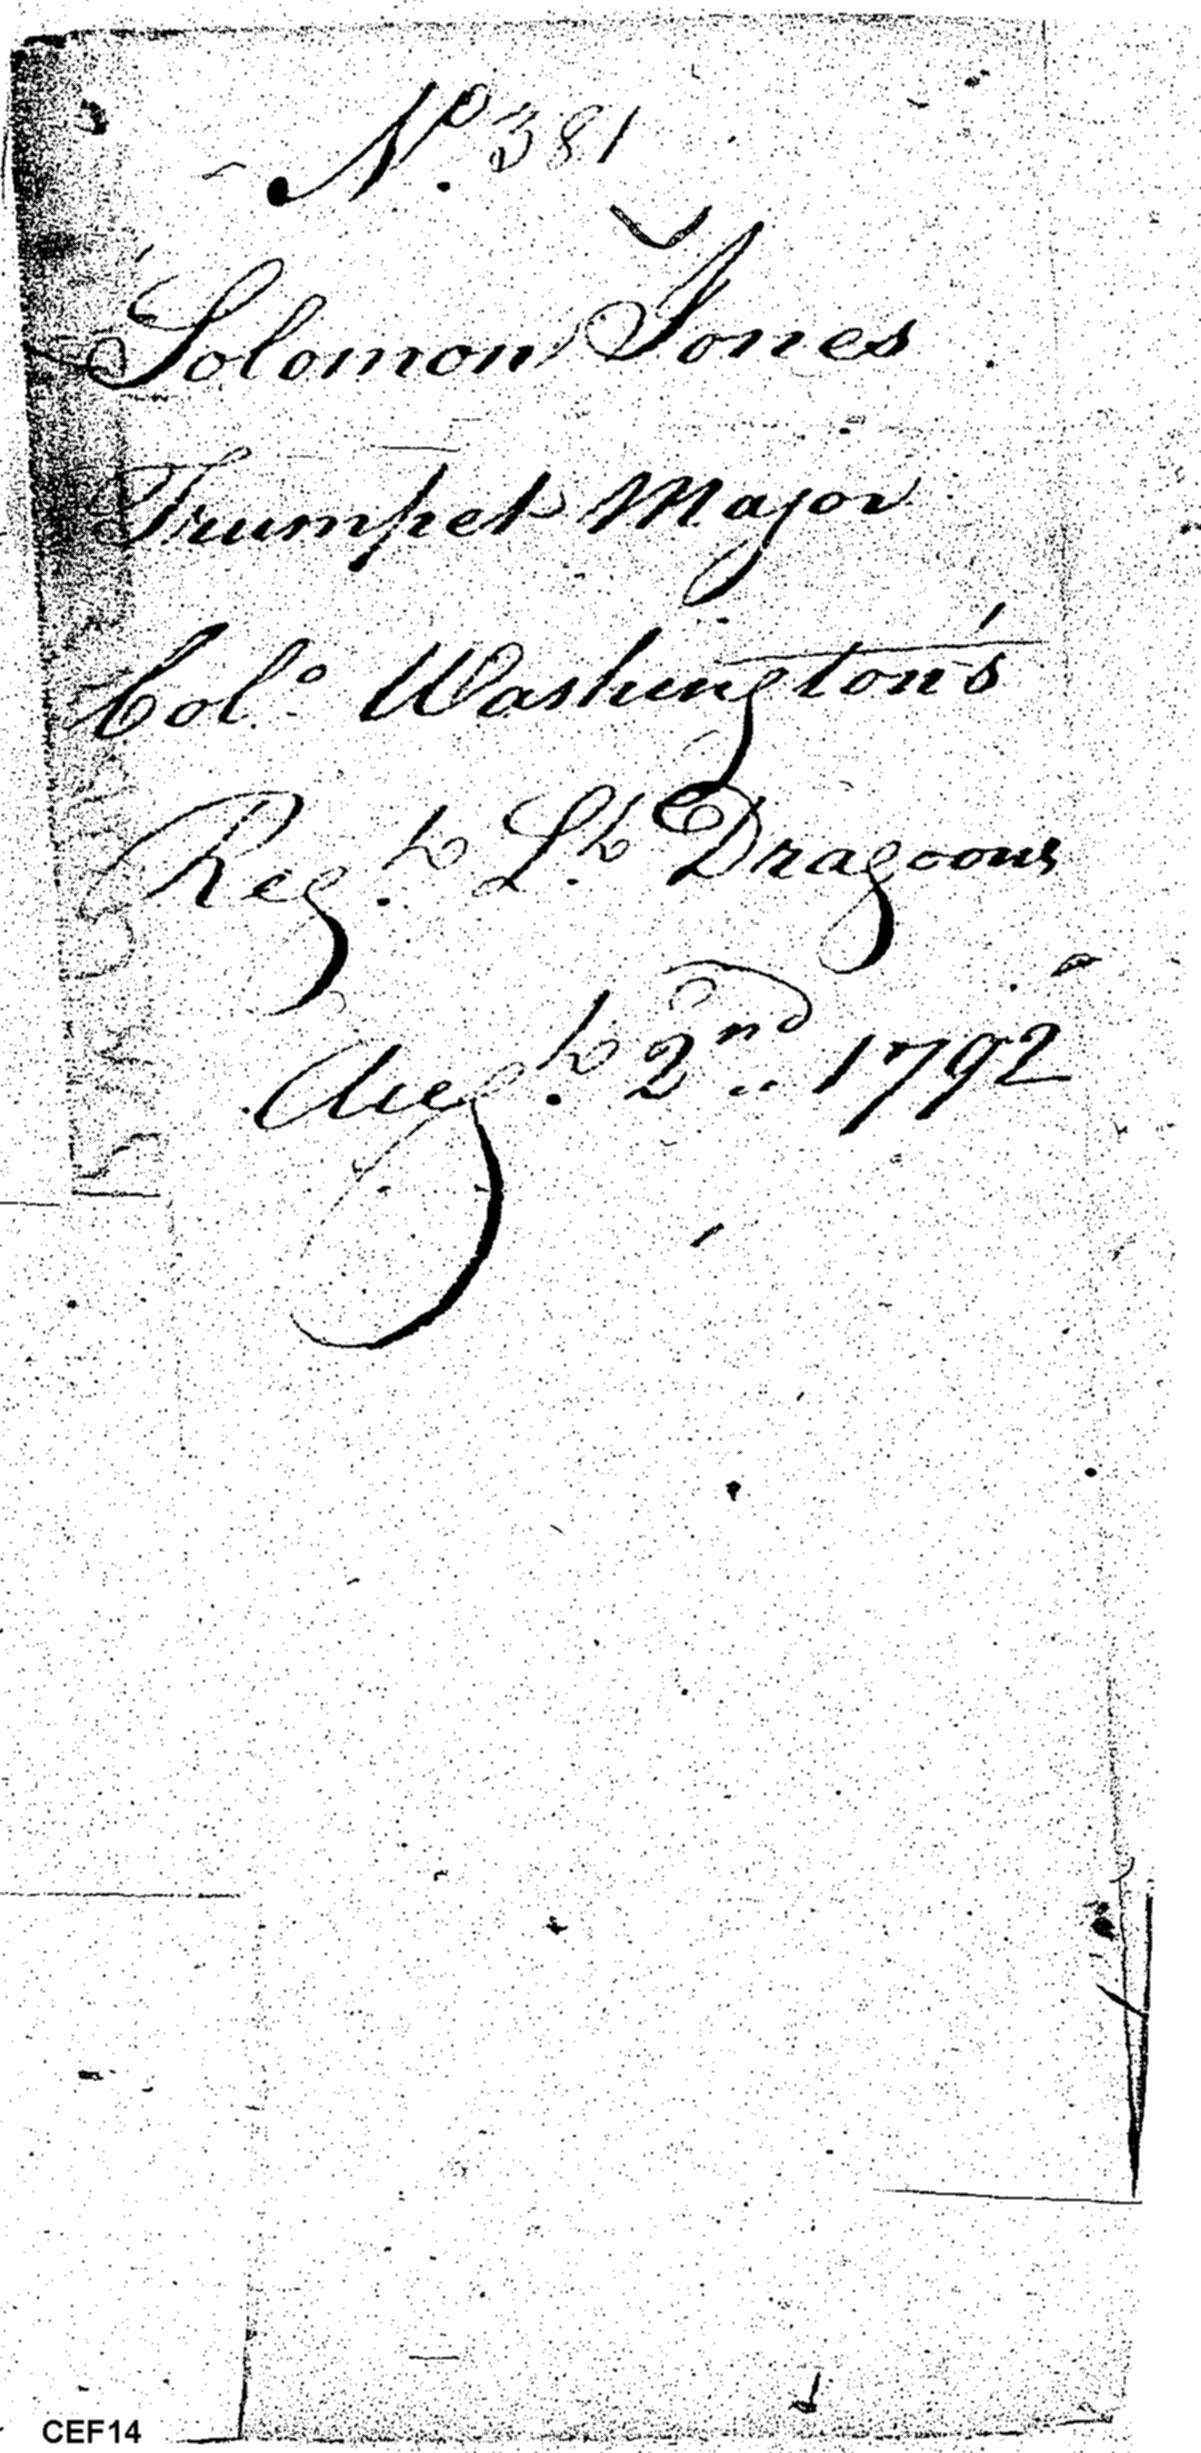 No. 381
Solomon Jones
Trumpet Major
Colo. Washington's
Regt. Lt. Dragoons
Augt. 2nd.. 1792
CEF14